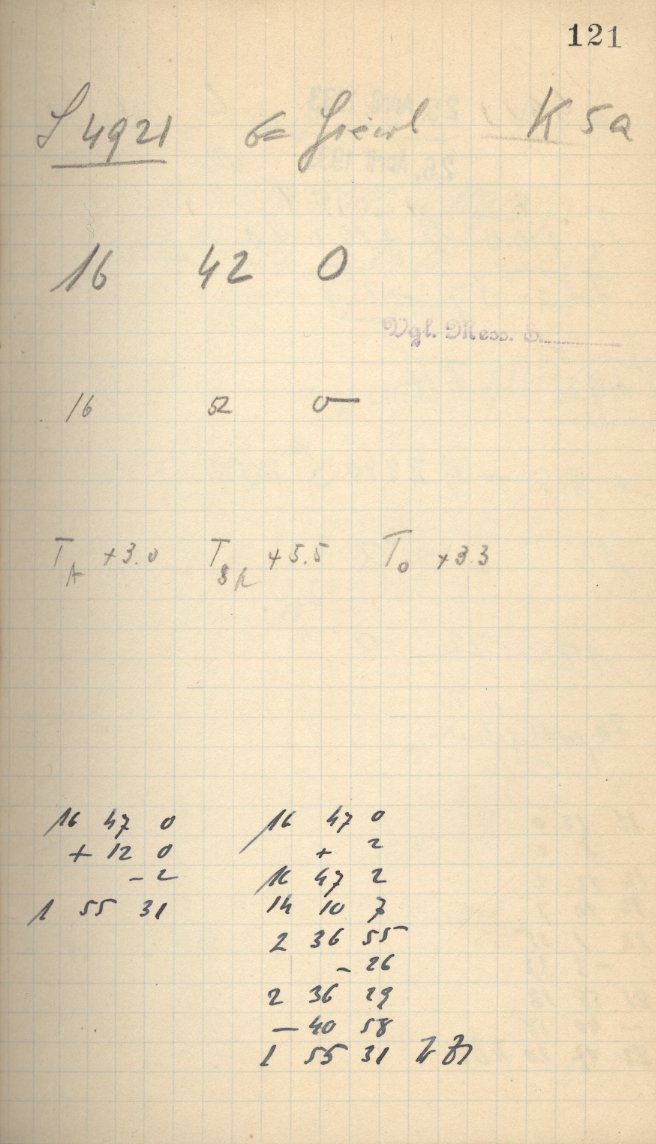 121
S 4921 K 5a
16 42 0
Vgl. Mess. S.
16 52 0
T A +3.0 T SR +5.5 T o +3.3
16 47 0
+ 12 0
- 2
1 55 31
16 47 0
+ 2
16 47 2
14 10 7
2 36 55
- 26
2 36 29
- 40 58
1 55 31